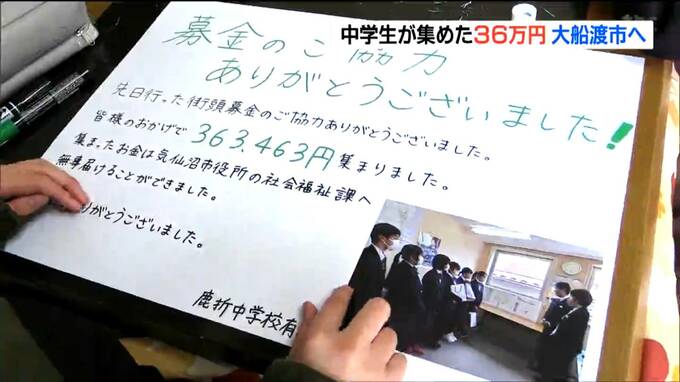 中学生が集めた36万円 大船渡市へ
募金のご協力
ありがとうございました!
先日行った街頭募金のご協力ありがとうございました。
皆様のおかげで363.463円集まりました。
集まったお金は気仙沼市役所の社会福祉課へ
無事届けることができました。
りがとうございました。
鹿折中学校有